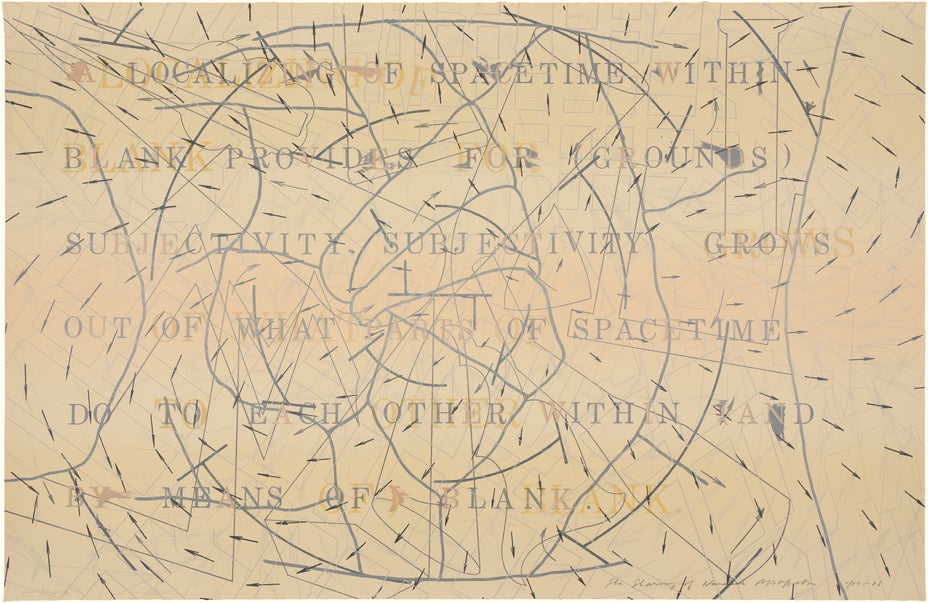 A LOCALIZING OF SPACETIME WITHIN
BLANK PROVIDES FOR (GROUNDS)
SUBJECTIVITY. SUBJECTIVITY GROWS
OUT OF WHAT PARTS OF SPACETIME
DO TO EACH OTHER WITHIN AND
BY MEANS OF BLANK
The Sharing of